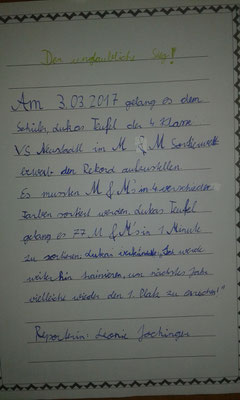 Der unglaubliche Sieg!
Am 3.03.2017 gelang es dem
Schüler Lukas Teufel der 4. Klasse
VS Neustadtl im M & M Sortierwett
bewerb den Rekord aufzustellen
Es mussten M & M's in 4 verschieden
Farben sortiert werden. Lukas Teufel
gelang es 77 M & M's in 1 Minute
zu sortieren. Lukas "Ich werde
weiter hin trainieren, um nächstes Jahr
vielleicht wieder den 1. Platz zu erreichen!"
Reporterin: Leonie Jochinger